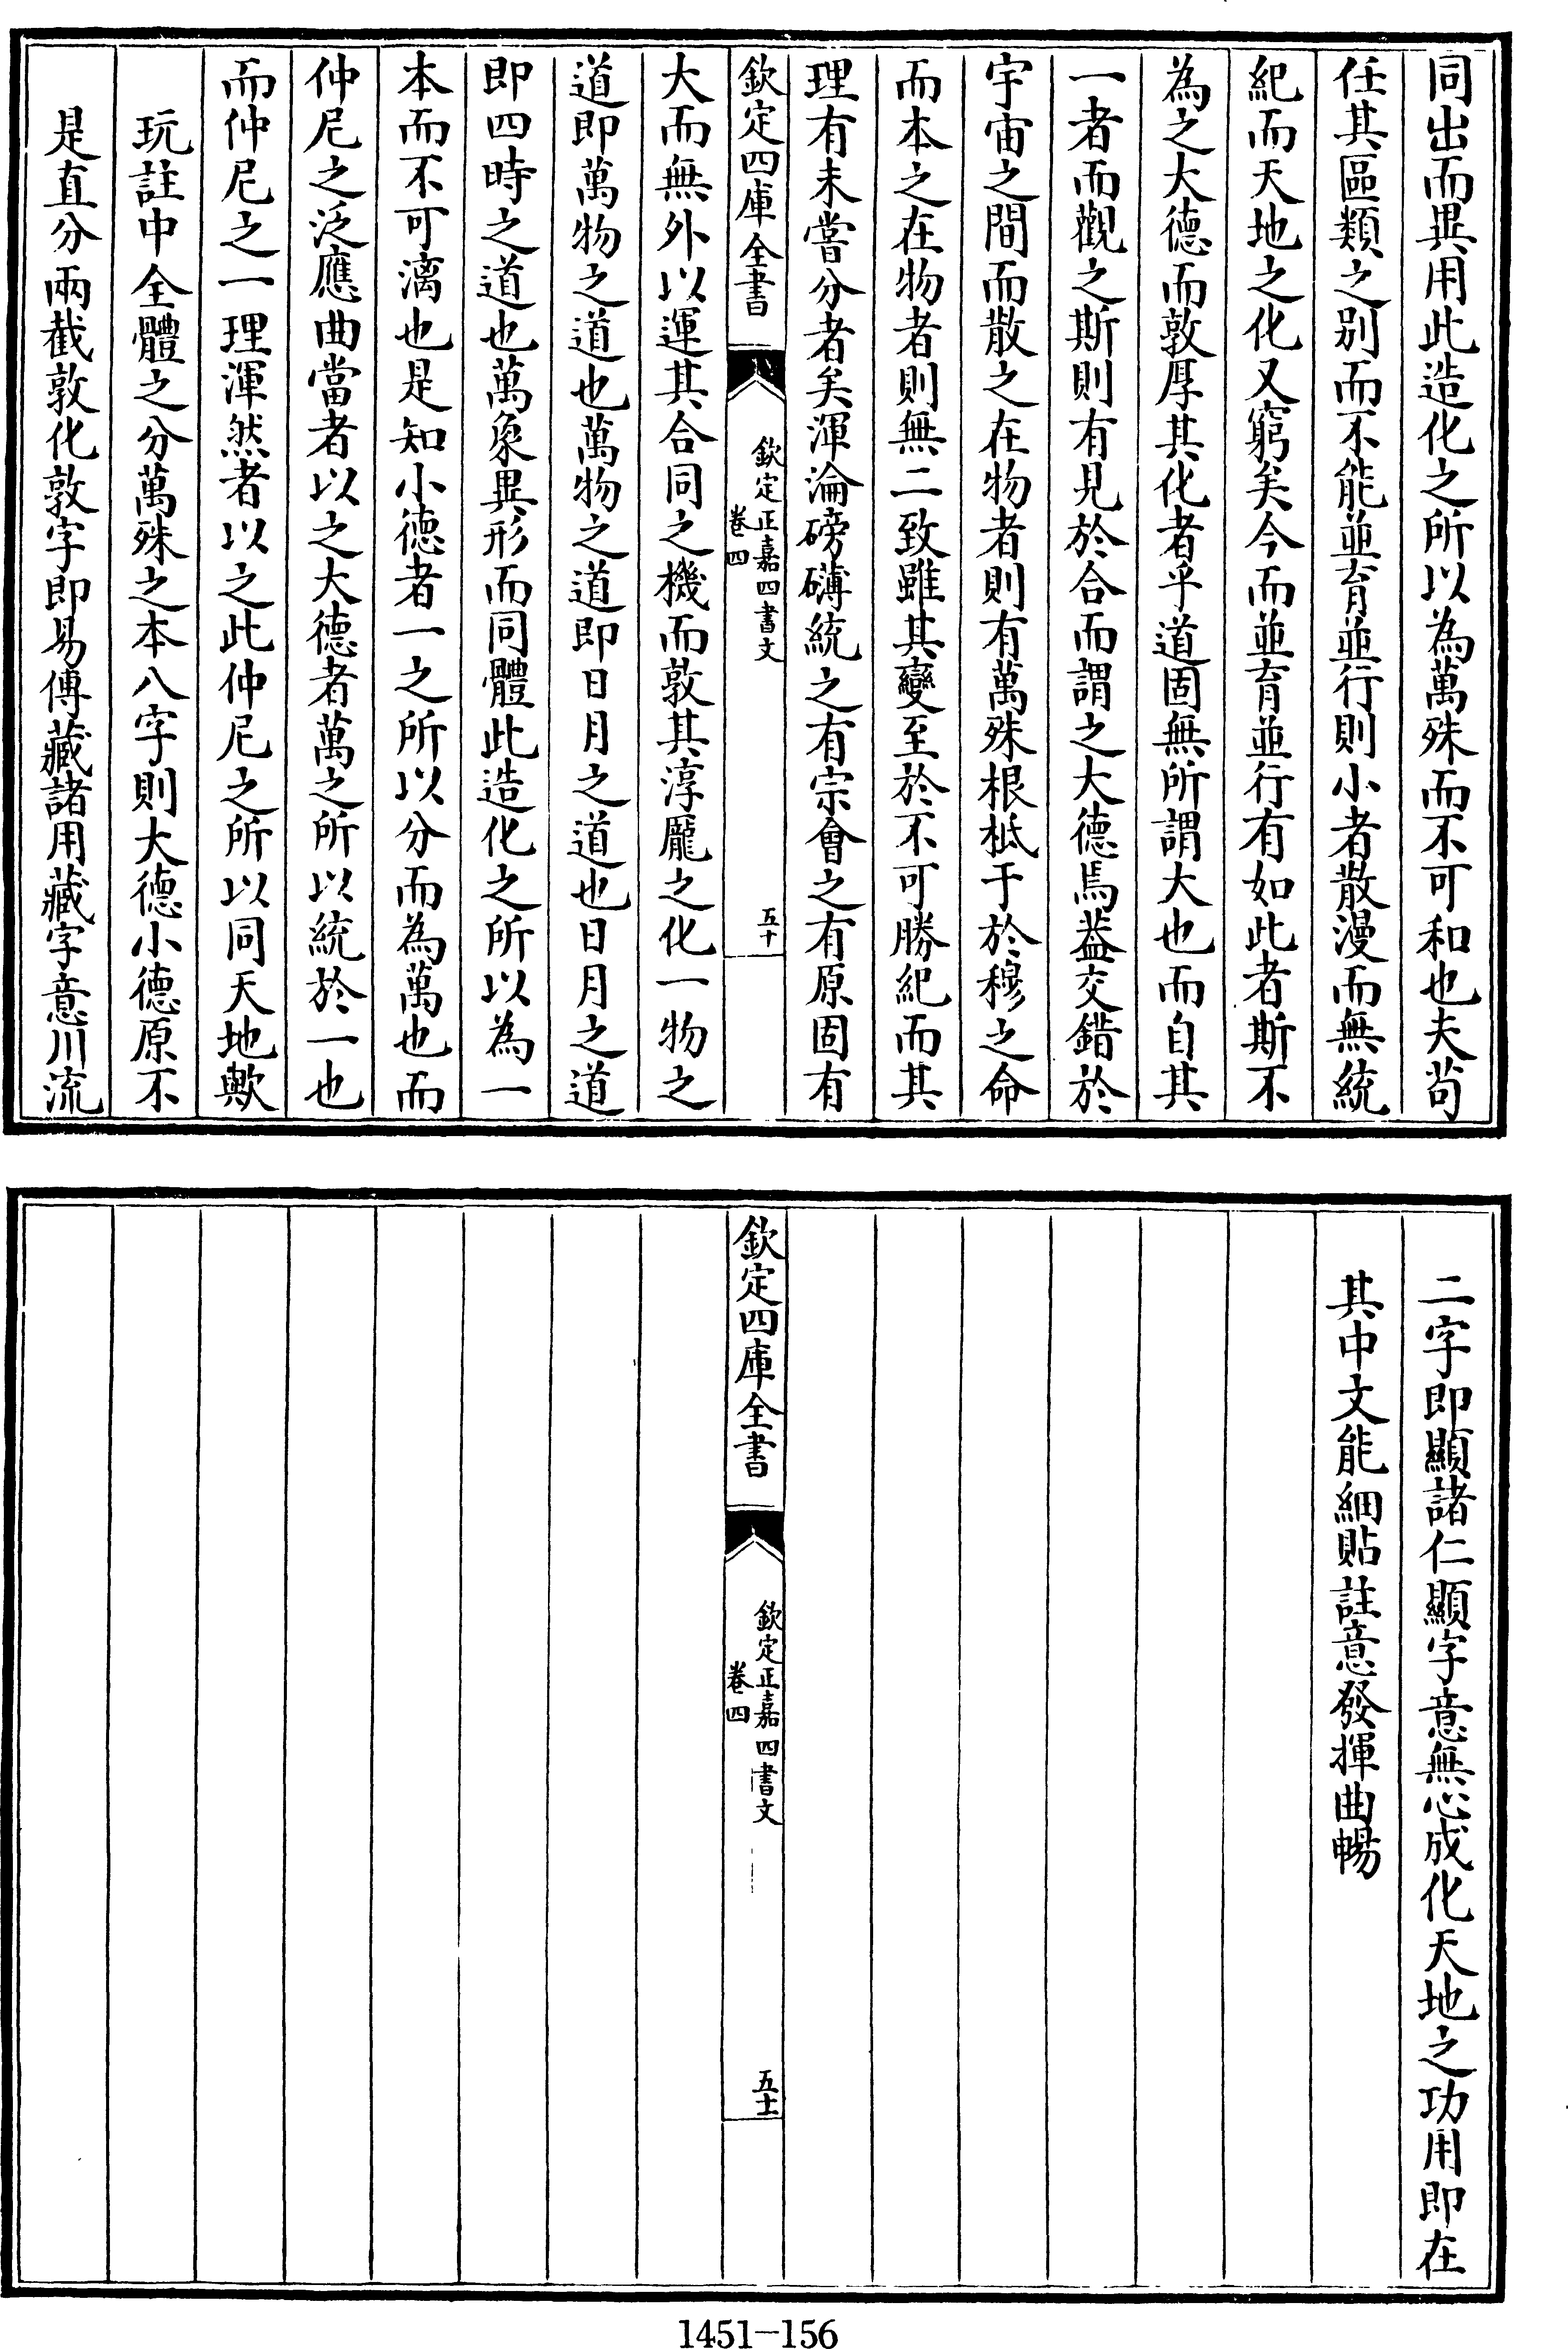 同出而異用此造化之所以為萬殊而不可和也夫苟
任其區類之别而不能並育並行則小者散漫而無統
紀而天地之化又窮矣今而並育並行有如此者斯不
為之大德而敦厚其化者乎道固無所謂大也而自其
一者而觀之斯則有見於合而謂之大德焉葢交錯於
宇宙之間而散之在物者則有萬殊根柢于於穆之命
而本之在物者則無二致雖其變至於不可勝紀而其
理有未嘗分者矣渾淪磅礴統之有宗會之有原固有
欽定四庫全書
欽定正嘉四書文
卷四
五十
大而無外以運其合同之機而敦其淳龎之化一物之
道即萬物之道也萬物之道即日月之道也日月之道
即四時之道也萬象異形而同體此造化之所以為一
本而不可漓也是知小德者一之所以分而為萬也而
仲尼之泛應曲當者以之大德者萬之所以統於一也
而仲尼之一理渾然者以之此仲尼之所以同天地歟
玩註中全體之分萬殊之本八字則大德小德原不
是直分兩截敦化敦字即易傳藏諸用藏字意川流
二字即顯諸仁顯字意無心成化天地之功用即在
其中文能細貼註意發揮曲暢
欽定四庫全書
欽定正嘉四書文
卷四
五十一
1451-156